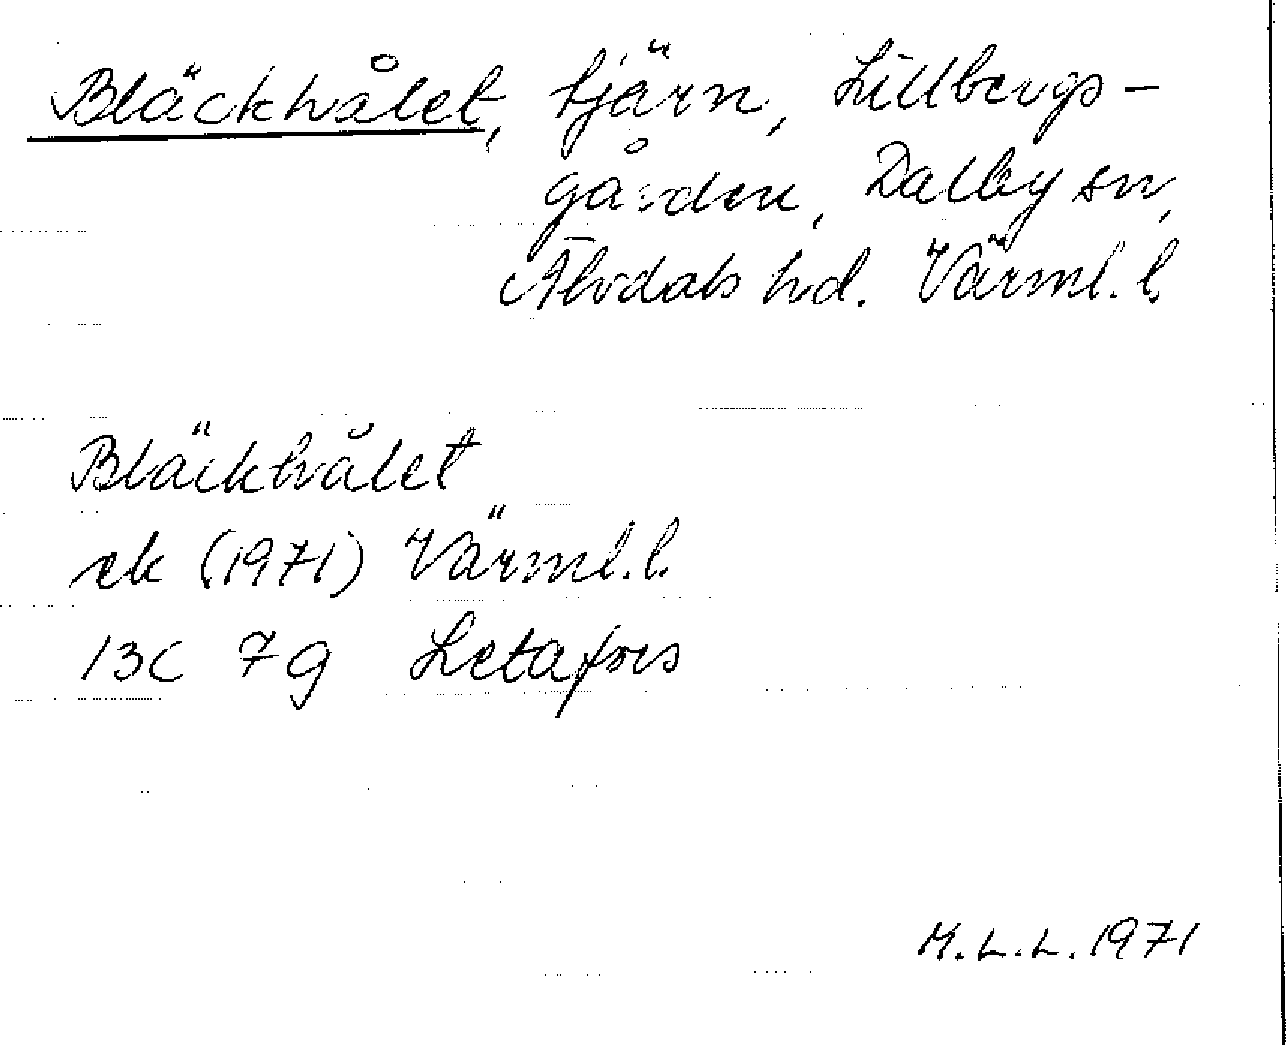 Bläckhålet, tjärn, Lillbergs-
gården, Dalby sn,
Älvdals hd. Värml. l.
Bläckhålet
ek (1971) Värml. l.
13C 7g Letafors
M.L.L. 1971